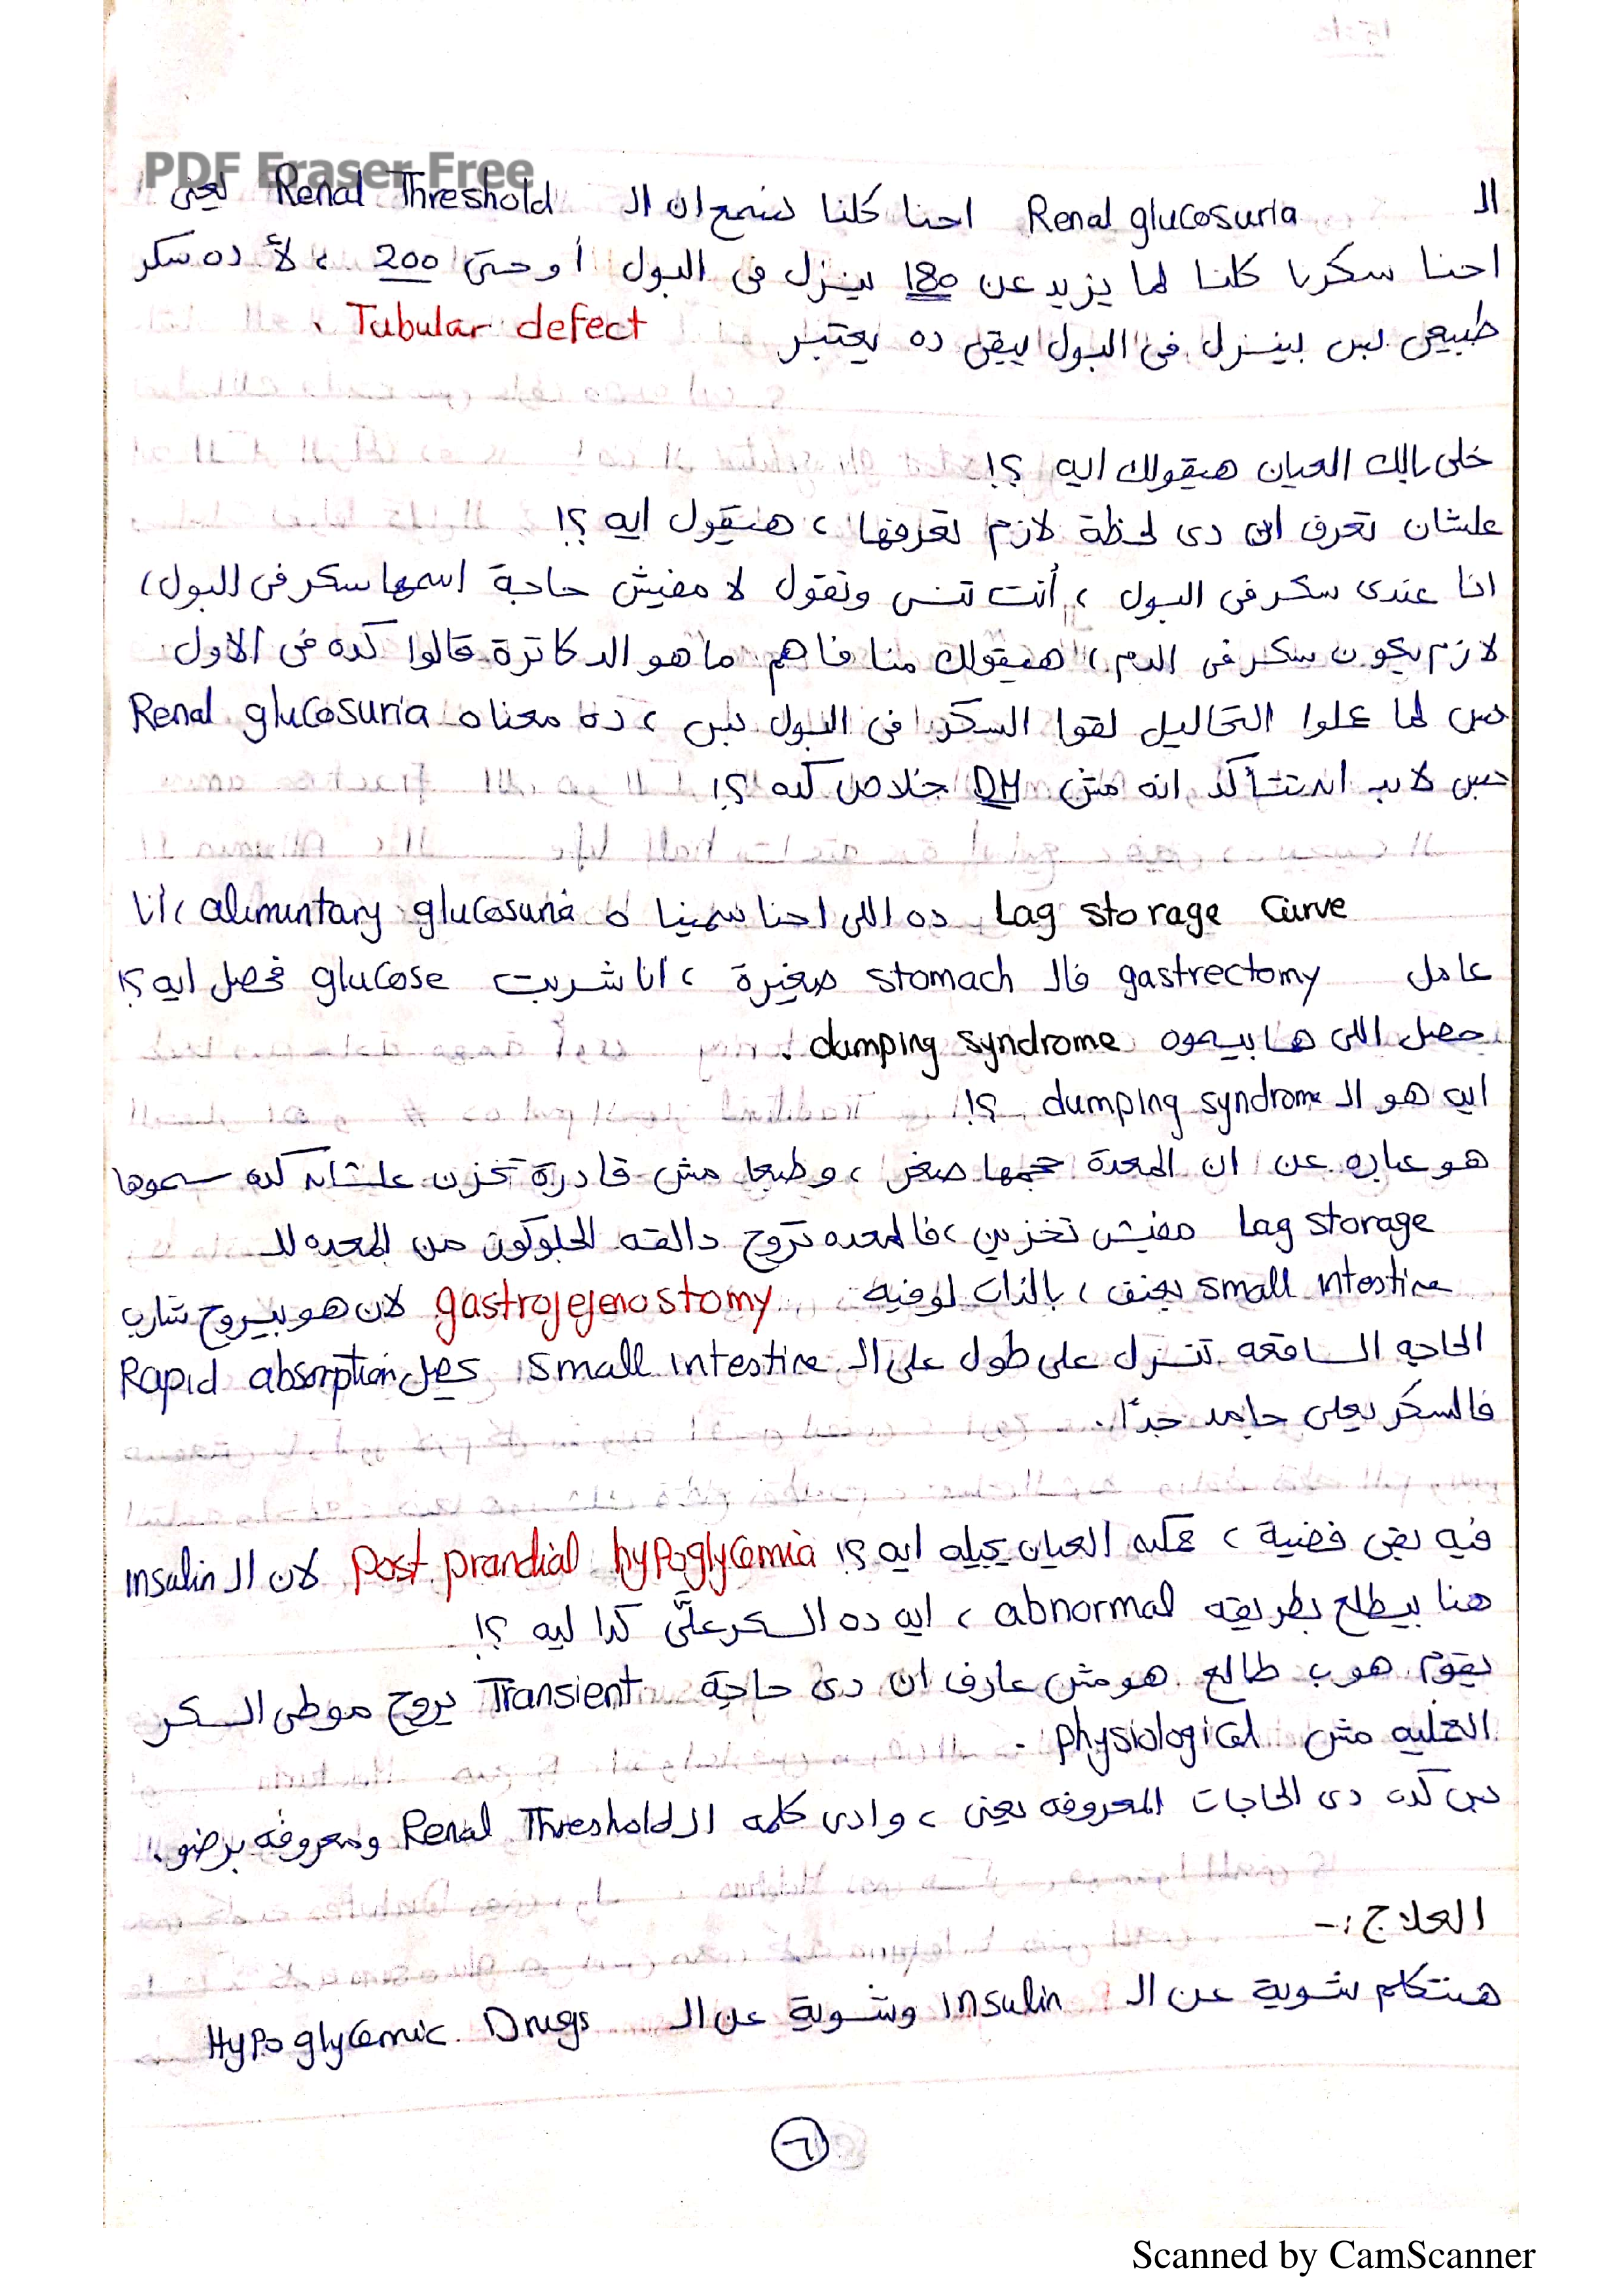 PDF Eraser Free
الـ Renal glucosuria احنا كلنا نسمع ان الـ Renal Threshold يعنى
احنا سكرنا كلنا لما يزيد عن 180 بينزل فى البول أو حتى 200 ، لأ ده سكر
طبيعى بس بينزل فى البول يبقى ده يعتبر Tubular defect .
خلى بالك العيان هيقولك ايه ؟!
علشان تعرف ان دى لحظة لازم تعرفها ، هيقول ايه ؟!
انا عندى سكر فى البول ، أنت تنسى وتقول لا مفيش حاجة اسمها سكر فى البول ،
لازم يكون سكر فى الدم ، هيقولك منا فاهم ما هو الدكاترة قالوا كده فى الأول
بس لما عملوا التحاليل لقوا السكر فى البول بس ، ده معناه Renal glucosuria
بس لابد ان تتأكد انه مش DM خلاص كده ؟!
Lag storage Curve ده اللى احنا سمينا ه alimuntary glucosuria ، أنا
عامل gastrectomy فالـ stomach صغيرة ، أنا شربت glucose فحصل ايه ؟!
حصل اللى هما بيسموه dumping syndrome .
ايه هو الـ dumping syndrome ؟!
هو عباره عن ان المعدة حجمها صغر ، وطبعا مش قادرة تخزن علشان كده سموها
Lag storage مفيش تخزين ، فالمعده تروح دالقه الجلوكوز من المعده للـ
small intestine بعنف ، بالذات لو فيه gastrojejenostomy لان هو بيروح شارب
الحاجه الساقعه تنزل على طول على الـ small intestine يحصل Rapid absorption
فالسكر يعلى جامد جدًا .
فيه بقى قضية ، ممكن العيان يجيله ايه ؟! Post prandial hypoglycemia لان الـ insulin
هنا بيطلع بطريقه abnormal ، ايه ده السكر علَّى كدا ليه ؟!
يقوم هوب طالع هو مش عارف ان دى حاجة Transient يروح موطى السكر
العمليه مش physiological .
بس كده دى الحاجات المعروفه يعنى ، وادى كلمه الـ Renal Threshold ومعروفه برضو .
العلاج :-
هنتكلم شوية عن الـ insulin وشوية عن الـ Hypoglycemic Drugs
٦
Scanned by CamScanner